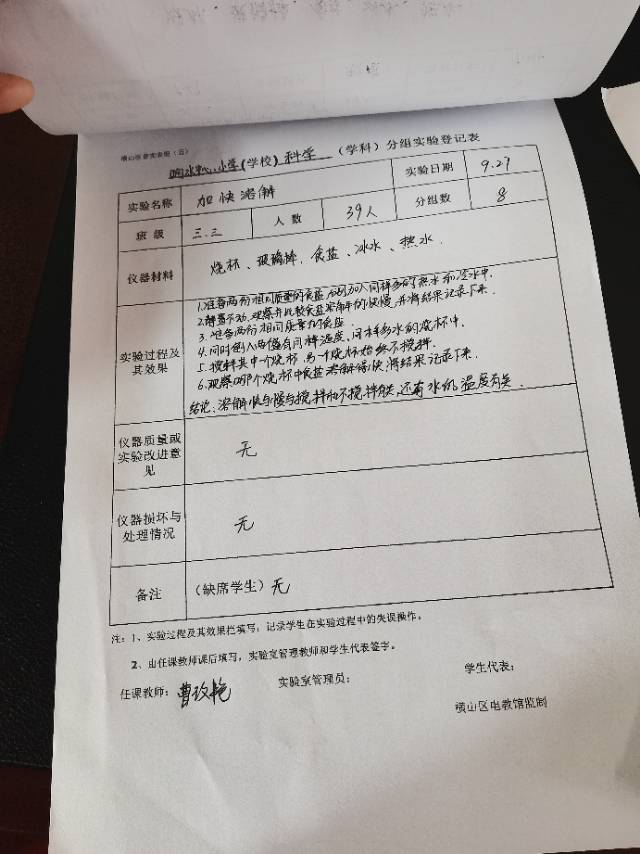 横山区教实表册（五）
响水中心小学(学校) 科学 （学科）分组实验登记表
实验名称 加快溶解 实验日期 9.27
班 级 三.三 人 数 39人 分组数 8
仪器材料 烧杯、玻璃棒、食盐、冰水、热水.
实验过程及其效果
1.准备两份相同质量的食盐,分别加入同样多的热水和冷水中.
2.静置不动,观察并比较食盐溶解的快慢,并将结果记录下来.
3.准备两份相同质量的食盐.
4.同时倒入两个同样温度、同样多水的烧杯中.
5.搅拌其中一个烧杯,另一个烧杯始终不搅拌.
6.观察哪个烧杯中食盐溶解得快,将结果记录下来.
结论:溶解快与慢与搅拌和不搅拌有关,还有水的温度有关.
仪器质量或实验改进意见 无
仪器损坏与处理情况 无
备注 （缺席学生）无
注：1、实验过程及其效果栏填写：记录学生在实验过程中的失误操作。
2、由任课教师课后填写，实验室管理教师和学生代表签字。
任课教师：曹玫艳 实验室管理员： 学生代表：
横山区电教馆监制